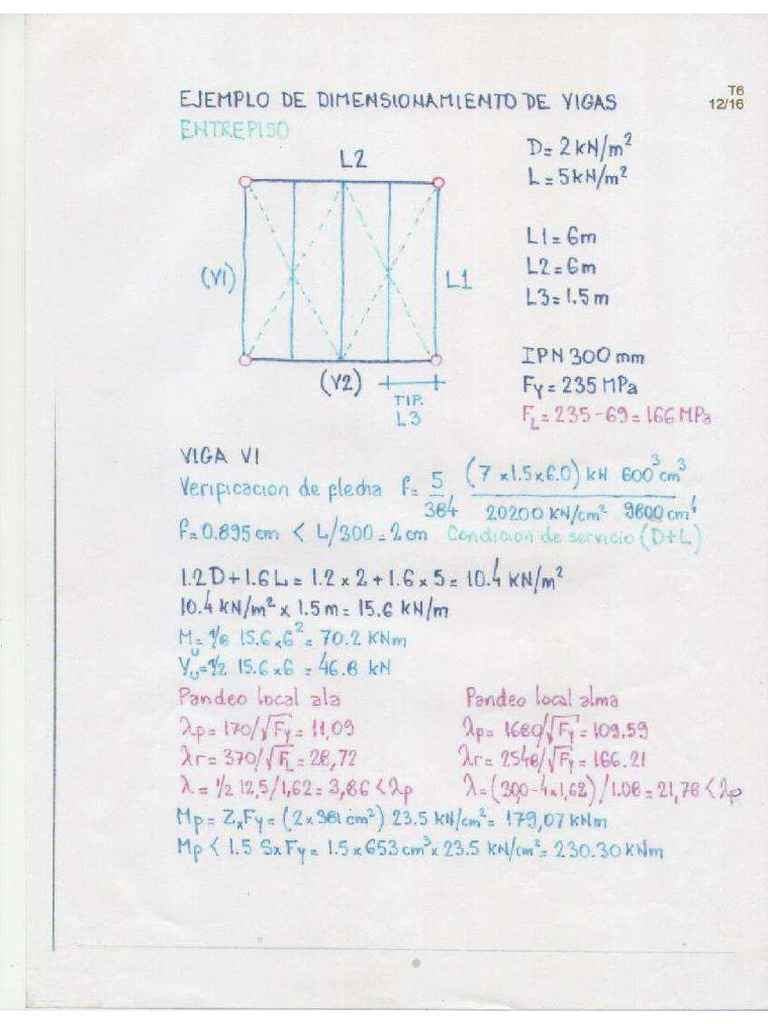 T6
12/16
EJEMPLO DE DIMENSIONAMIENTO DE VIGAS
ENTREPISO
L2
D= 2 kN/m²
L = 5 kN/m²
(V1)
L1
L1 = 6m
L2 = 6m
L3 = 1.5 m
(V2)
TIP.
L3
IPN 300 mm
Fy = 235 MPa
FL = 235-69 = 166 MPa
VIGA V1
Verificacion de flecha f= 5/384 (7 x 1.5 x 6.0) kN 600³ cm³ / 20200 kN/cm² 9800 cm⁴
f= 0.895 cm < L/300 = 2cm Condicion de servicio (D+L)
1.2D + 1.6 L = 1.2 x 2 + 1.6 x 5 = 10.4 kN/m²
10.4 kN/m² x 1.5 m = 15.6 kN/m
Mu = 1/8 15.6 x 6² = 70.2 KNm
Vu = 1/2 15.6 x 6 = 46.8 kN
Pandeo local ala
λp = 170/√Fy = 11,09
λr = 370/√FL = 28,72
λ = 1/2 12,5/1,62 = 3,86 < λp
Pandeo local alma
λp = 1680/√Fy = 109.59
λr = 2548/√Fy = 166.21
λ = (300-4x1,62)/1.08 = 21,78 < λp
Mp = Zx Fy = (2 x 381 cm³) 23.5 kN/cm² = 179,07 kNm
Mp < 1.5 Sx Fy = 1.5 x 653 cm³ x 23.5 kN/cm² = 230.30 kNm